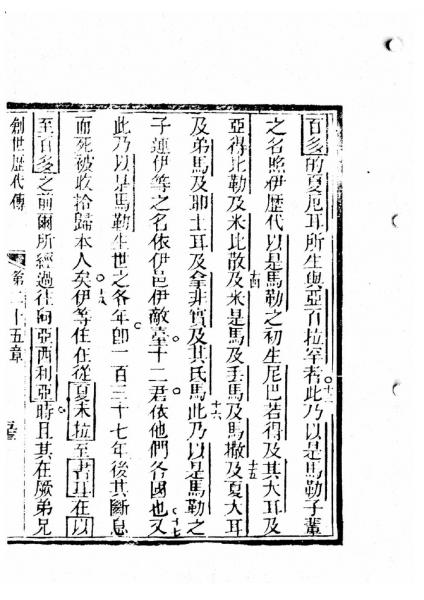 百多的夏厄耳所生與亞百拉罕者此乃以是馬勒子輩
十三
之名照伊歷代以是馬勒之初生尼巴若得及其大耳及
十四
亞得比勒及米比散及米是馬及馬及馬撒及夏大耳
十五
及弟馬及耶土耳及拿非實及其氏馬此乃以是馬勒之
十六
子連伊等之名依伊邑伊敵臺十二君依他們各國也又
十七
此乃以是馬勒生世之各年即一百三十七年後其斷息
而死被收拾歸本人矣伊等住在從夏未拉至書耳在以
十八
至百多之前爾所經過往向亞西利亞時且其在厥弟兄
創世歷代傳
第二十五章